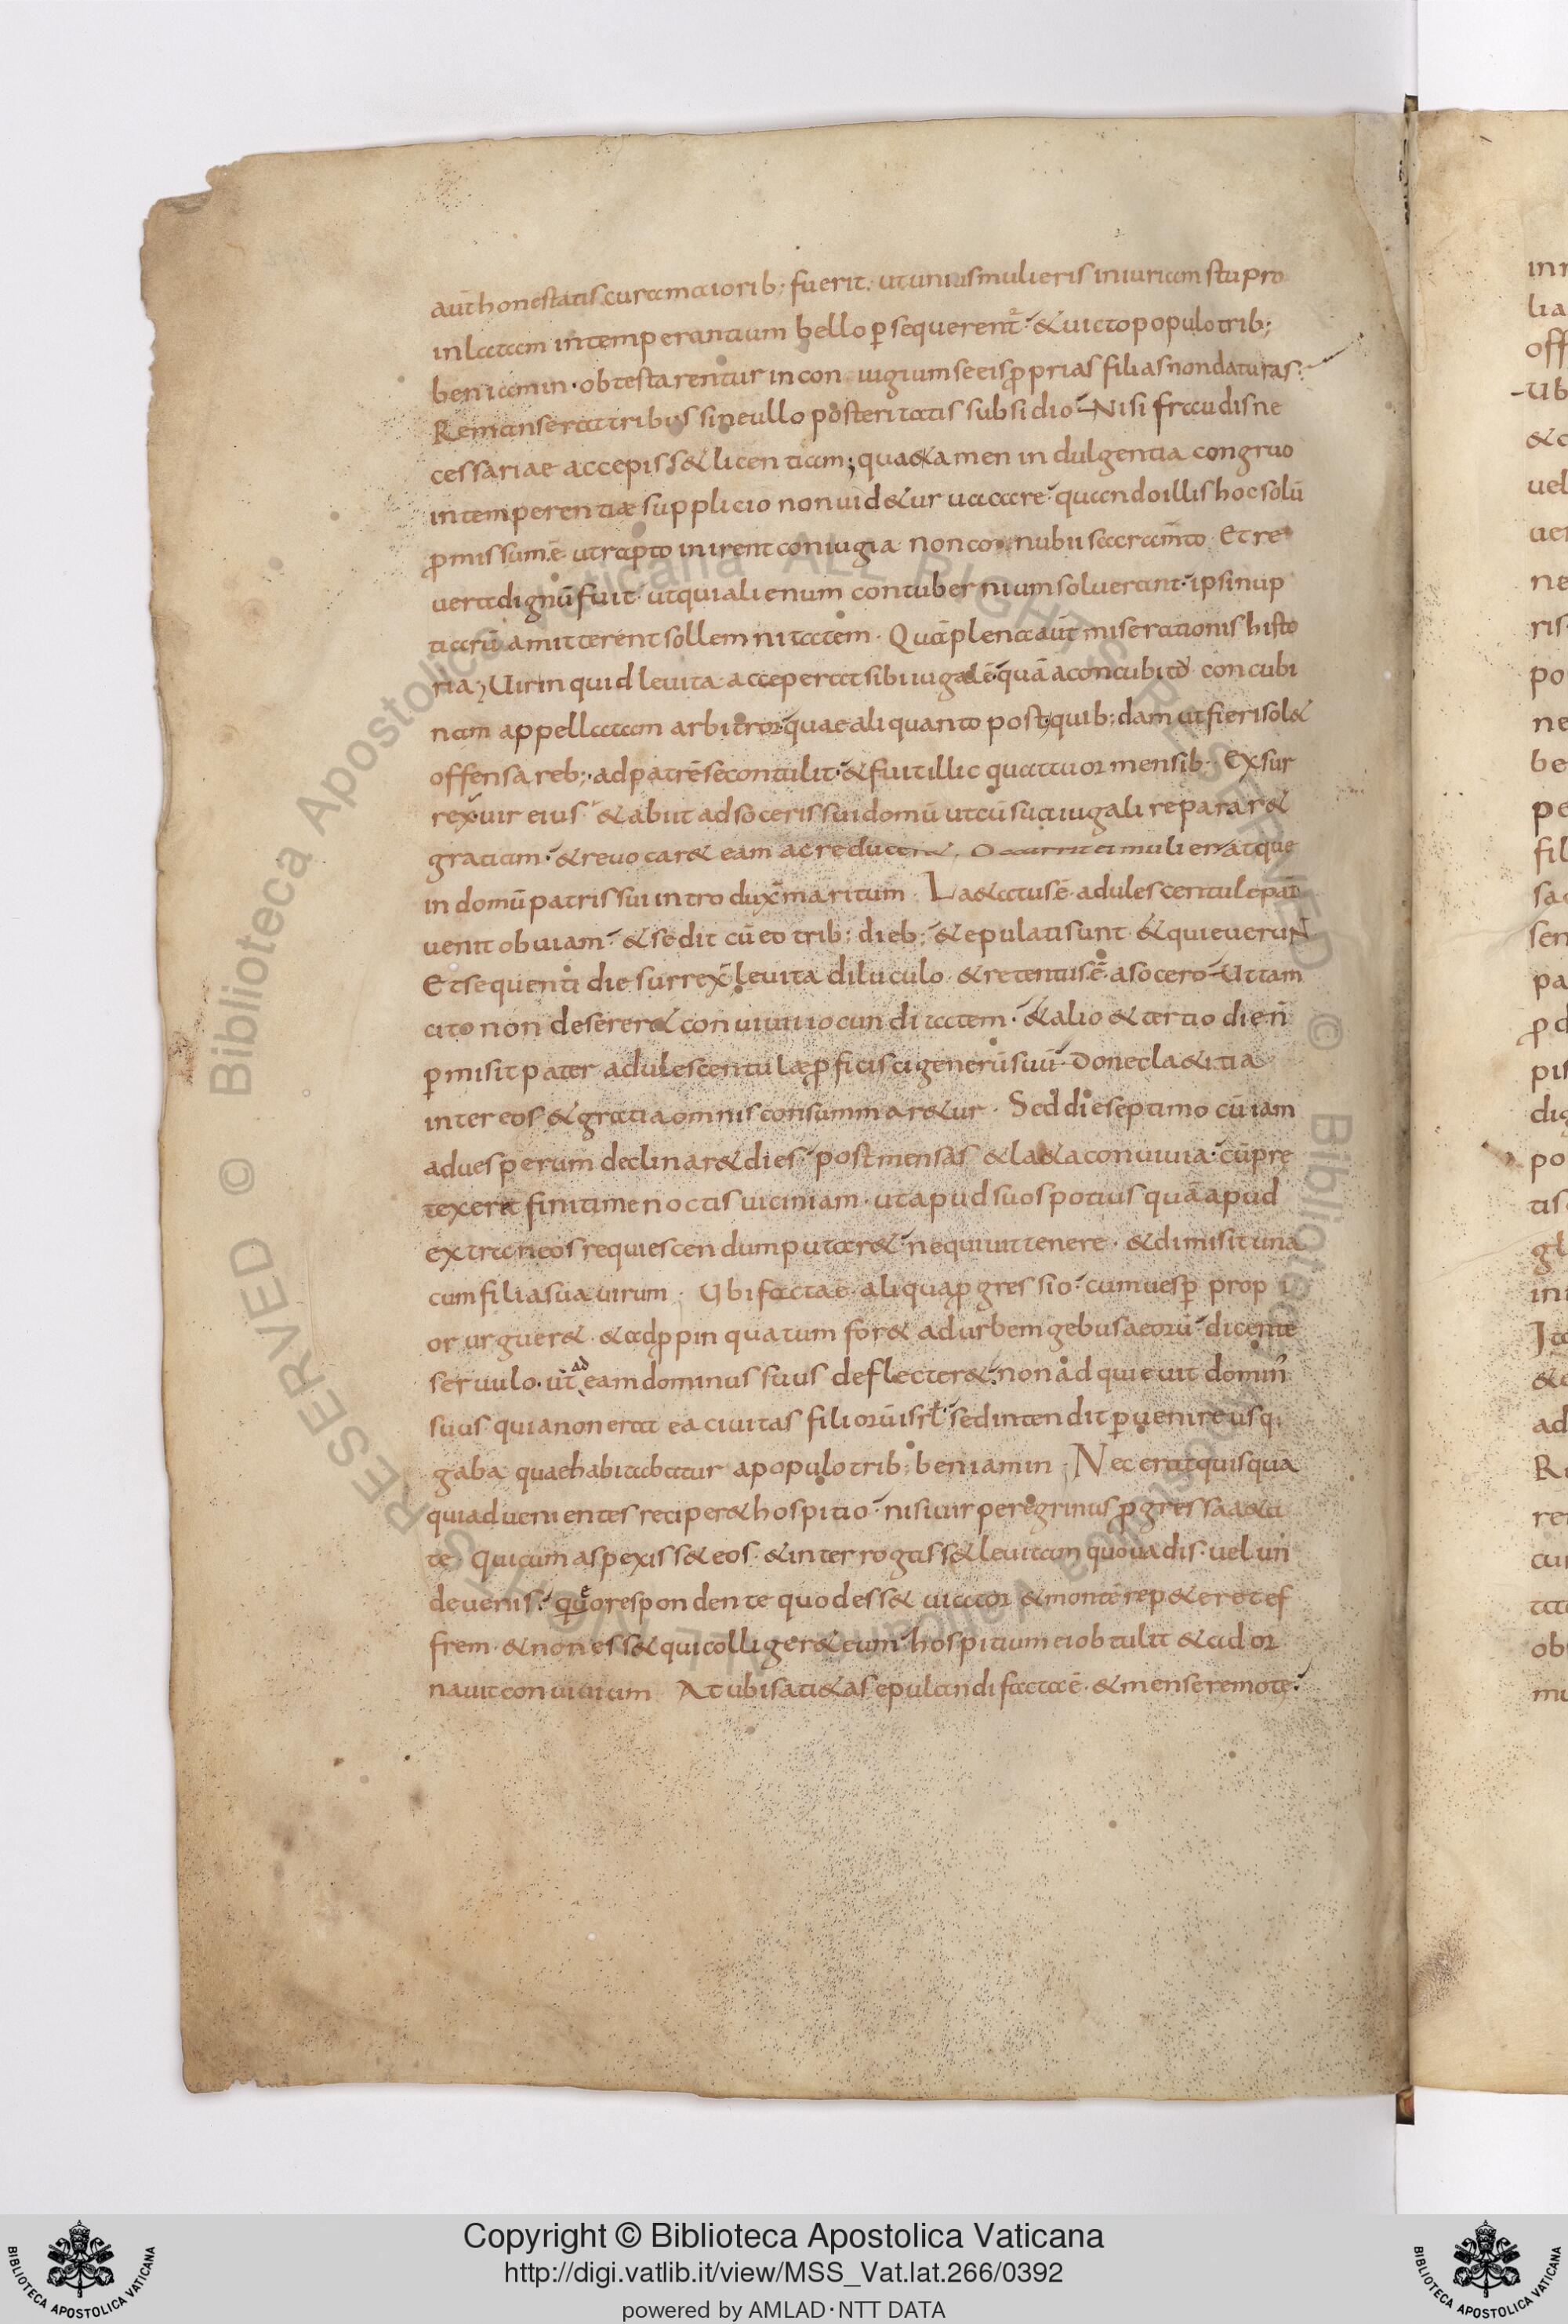 aut̄ honestatis cura maiorib; fuerit. ut unius mulieris iniuriam stupro
inlatam intemperantium bello p̲sequerent̄. & uicto populo trib;
beniamin. obtestarentur in coniugium se eis ꝓprias filias non daturas.
Remanserat tribus sine ullo posteritatis subsidio. Nisi fraudis ne
cessariae accepiss& licentiam; quae tamen indulgentia congruo
intemperentiæ supplicio non uid&ur uacare. quando illis hoc solū
ꝓmissum ē. ut rapto inirent coniugia non conubii sacram̄to. Et re
uera dignū fuit. ut qui alienum contubernium soluerant. ipsi nup
tiarū amitterent sollemnitatem. Quā plena aut̄ miserationis histo
ria; Uir inquid leuita acceperat sibi iugalē. quā a concubito concubi
nam appellatam arbitror. quae aliquanto post. quib;dam ut fieri sol&
offensa reb;. ad patrē se contulit. & fuit illic quattuor mensib. Exsur
rex̄ uir eius & abiit ad soceris sui domū ut cū sua iugali reparar&
gratiam. & reuocar& eam ac reducer&. Occurrit ei mulier atque
in domū patris sui introdux̄ maritum. La&atus ē adulescentule pat̄
uenit obuiam. & sedit cū eo trib; dieb; & epulati sunt & quieuerunt
Et sequenti die surrex̄ leuita diluculo & retentus ē a socero. Ut tam
cito non deserer& conuiuii iocunditatem. & alio & tertio die n̄
p̲misit pater adulescentulæ ꝓficisci generū suū. Donec la&itia
inter eos & gratia omnis consummar&ur. Sed die septimo cū iam
ad uesperum declinar& dies post mensas & la&a conuiuia. cū pre
texerit finitime noctis uiciniam. ut apud suos potius quā apud
extraneos requiescendum putar&. nequiuit tenere. & dimisit una
cum filia sua uirum. Ubi facta e. aliqua ꝓgressio. cum uesp̲ propi
or urguer& & adꝓpinquatum for& ad urbem gebusaeorū. dicente
seruulo. ut ad eam dominus suus deflecter&. non adquieuit domin'
suus quia non erat ea ciuitas filiorū isrl. sed intendit p̲uenire usq;
gaba quae habitabatur a populo trib; beniamin. Nec erat quisquā
qui aduenientes reciper& hospitio. nisi uir peregrinus ꝓgressa a&a
te. Qui cum aspexiss& eos. & interrogass& leuitam quo uadis. uel un
de uenis. quo respondente quod ess& uiator & montē rep&eret ef
frem. & non ess& qui colliger& eum. hospitium ei obtulit & ador
nauit conuiuium. At ubi sati&as epulandi facta ē. & mense remote.
Copyright © Biblioteca Apostolica Vaticana
http://digi.vatlib.it/view/MSS_Vat.lat.266/0392
powered by AMLAD·NTT DATA